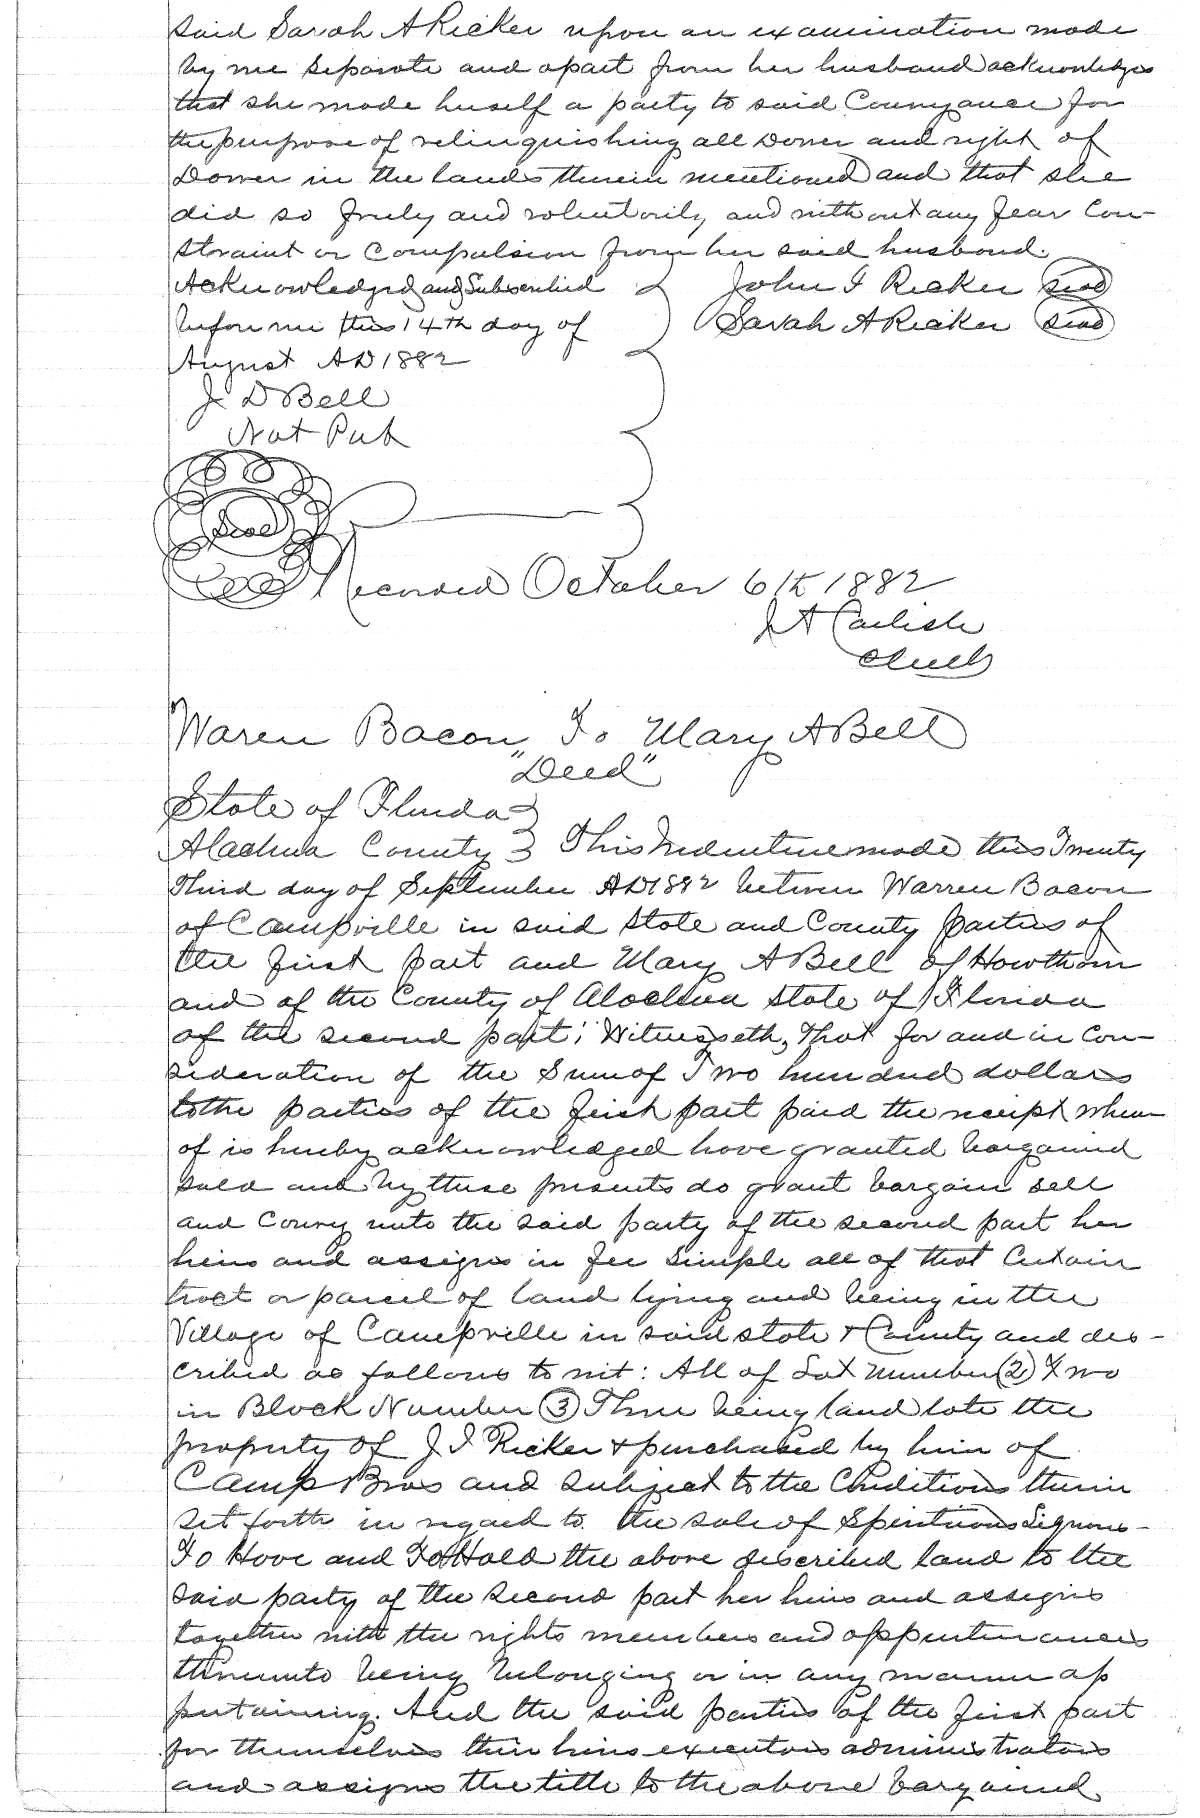 said Sarah A Ricker upon an examination made
by me separate and apart from her husband acknowledges
that she made herself a party to said Conveyance for
the purpose of relinquishing all Dower and right of
Dower in the lands therein mentioned and that she
did so freely and voluntarily and without any fear Con-
straint or Compulsion from her said husband.
Acknowledged and Subscribed
before me this 14th day of
August AD 1882
J D Bell
Not Pub
Seal
John I Ricker Seal
Sarah A Ricker Seal
Recorded October 6th 1882
J A Carlisle
Clerk
Warren Bacon To Mary A Bell
"Deed"
State of Florida
Alachua County This Indenture made this Twenty
Third day of September AD 1882 between Warren Bacon
of Campville in said State and County parties of
the first part and Mary A Bell of Hawthorn
and of the County of Alachua State of Florida
of the second part; Witnesseth, That for and in Con-
sideration of the Sum of Two hundred dollars
to the parties of the first part paid the receipt where-
of is hereby acknowledged have granted bargained
sold and by these presents do grant bargain sell
and Convey unto the said party of the second part her
heirs and assigns in fee simple all of that Certain
tract or parcel of land lying and being in the
Village of Campville in said state & County and des-
cribed as follows to wit: All of Lot Number (2) Two
in Block Number (3) Three being land late the
property of J I Ricker & purchased by him of
Camp Bros and subject to the Conditions therein
set forth in regard to the sale of Spirituous Liquors-
To Have and To Hold the above described land to the
said party of the second part her heirs and assigns
together with the rights members and appurtenances
thereunto being belonging or in any manner ap
pertaining. And the said parties of the first part
for themselves their heirs executors administrators
and assigns the title to the above bargained